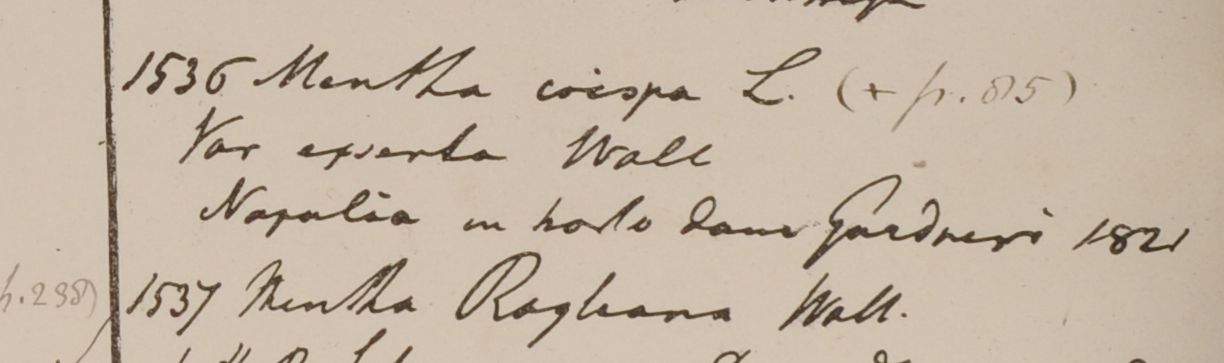 1536 Mentha crispa L. (+ p. 85)
Var exserta Wall
Napalia in horto dom Gardneri 1821
p. 238) 1537 Mentha Royleana Wall.